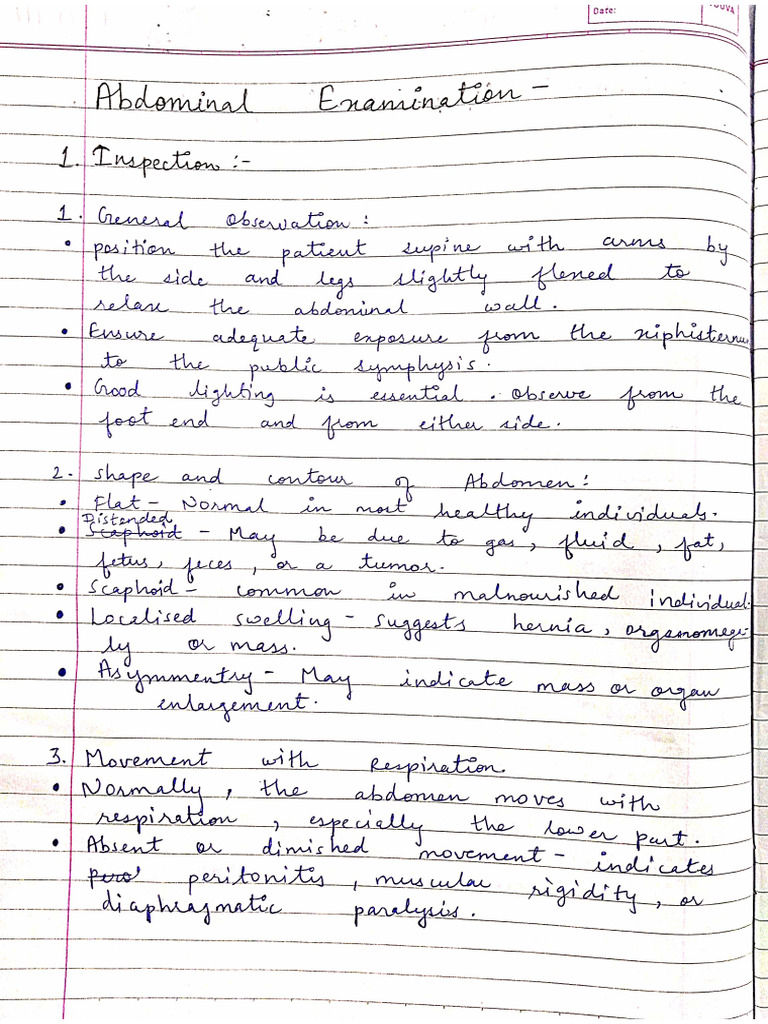 Date:
YOUVA
Abdominal Examination -
1. Inspection :-
1. General Observation :
• position the patient supine with arms by
the side and legs slightly flexed to
relax the abdominal wall.
• Ensure adequate exposure from the xiphisternum
to the public symphysis.
• Good lighting is essential. Observe from the
foot end and from either side.
2. Shape and contour of Abdomen :
• Flat - Normal in most healthy individuals.
Distended
• Scaphoid - May be due to gas, fluid, fat,
fetus, feces, or a tumor.
• Scaphoid - common in malnourished individual.
• Localised swelling - suggests hernia, organomege-
ly or mass.
• Asymmentry - May indicate mass or organ
enlargement.
3. Movement with Respiration.
• Normally, the abdomen moves with
respiration, especially the lower part.
• Absent or dimished movement - indicates
pero peritonitis, muscular rigidity, or
diaphragmatic paralysis.